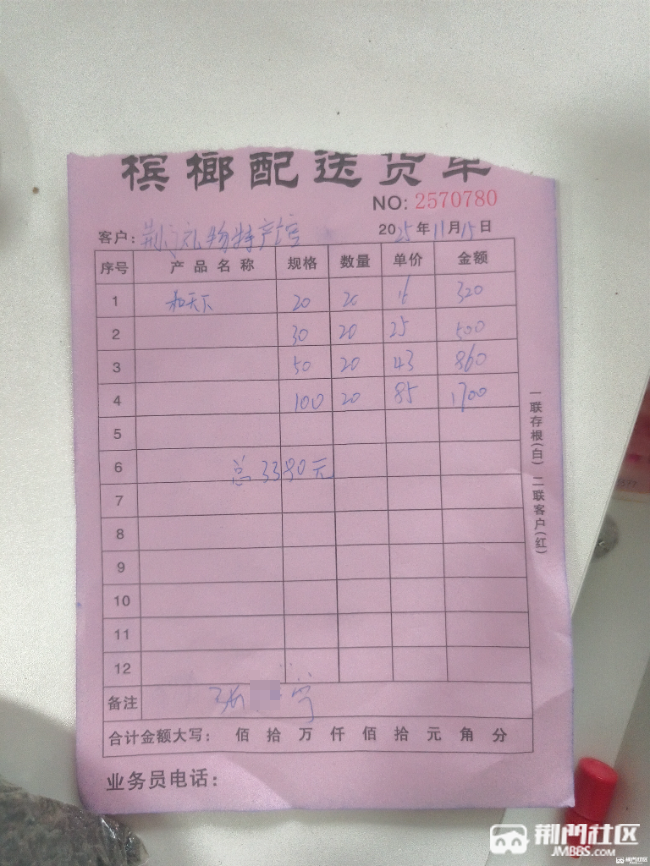 槟榔配送货单
NO: 2570780
客户: 荆门礼物特产馆 2025年11月15日
序号 产品名称 规格 数量 单价 金额
1 和天下 20 20 16 320
2 30 20 25 500
3 50 20 43 860
4 100 20 85 1700
5
6 总3380元
7
8
9
10
11
12
备注
合计金额大写: 佰 拾 万 仟 佰 拾 元 角 分
业务员电话:
一联存根(白) 二联客户(红)
荆門社区
JMBBS.COM
荆门社区